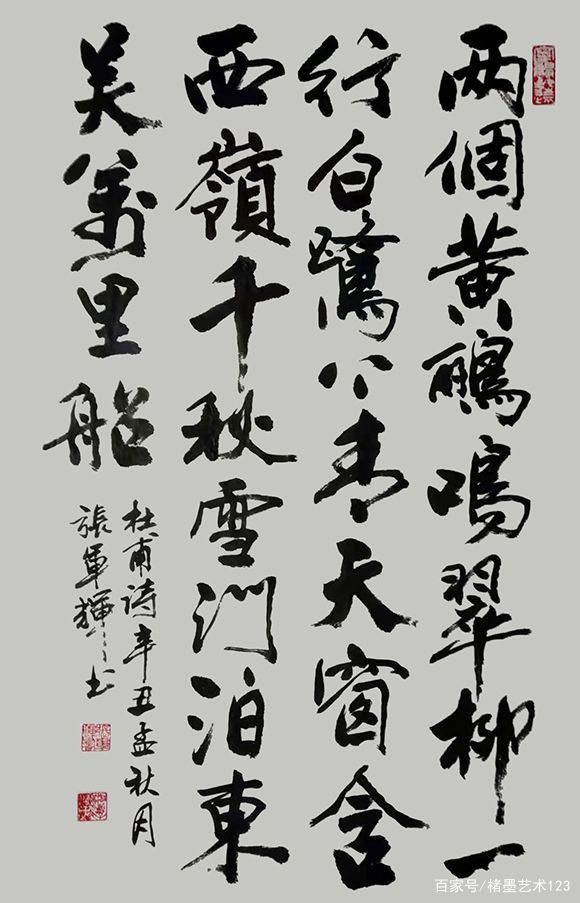 两個黄鸝鳴翠柳一
行白鷺上青天窗含
西嶺千秋雪門泊東
吴萬里船
杜甫詩辛丑孟秋月
張軍輝書
百家号/楮墨艺术123